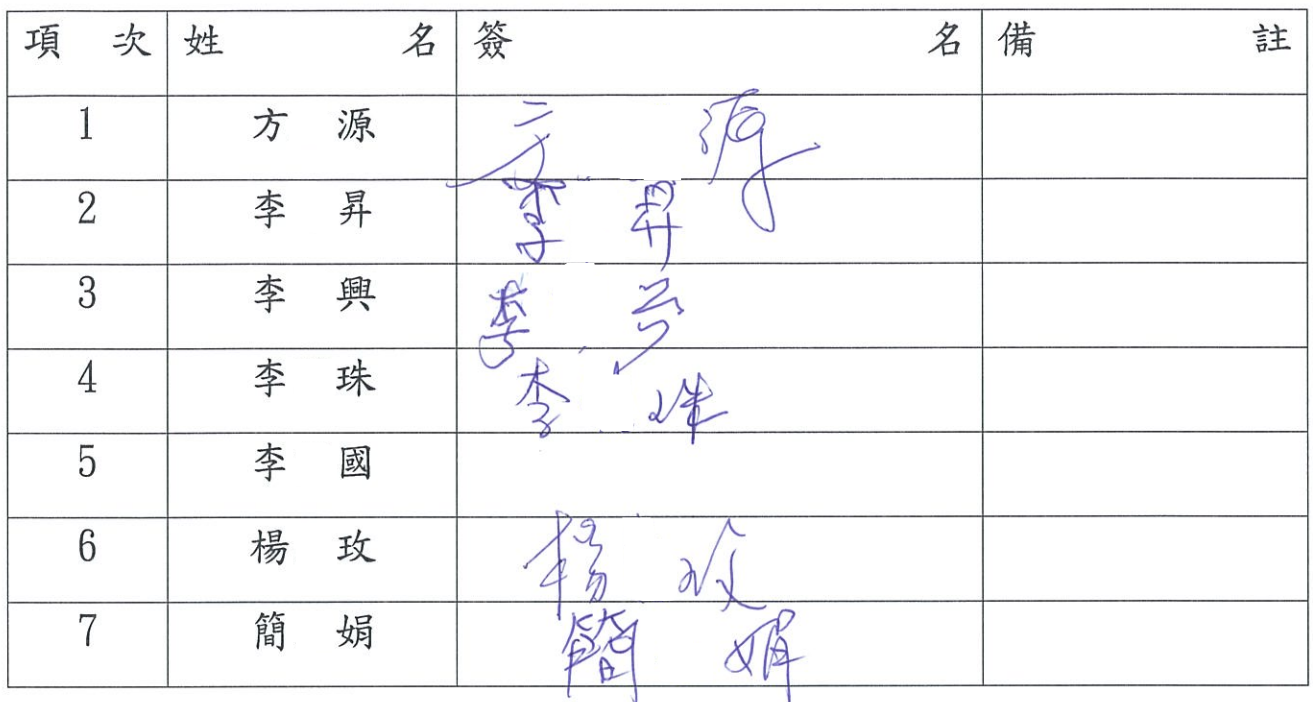 項次 姓名 簽名 備註
1 方源 方源
2 李昇 李昇
3 李興 李兴
4 李珠 李珠
5 李國
6 楊玫 楊玫
7 簡娟 簡娟